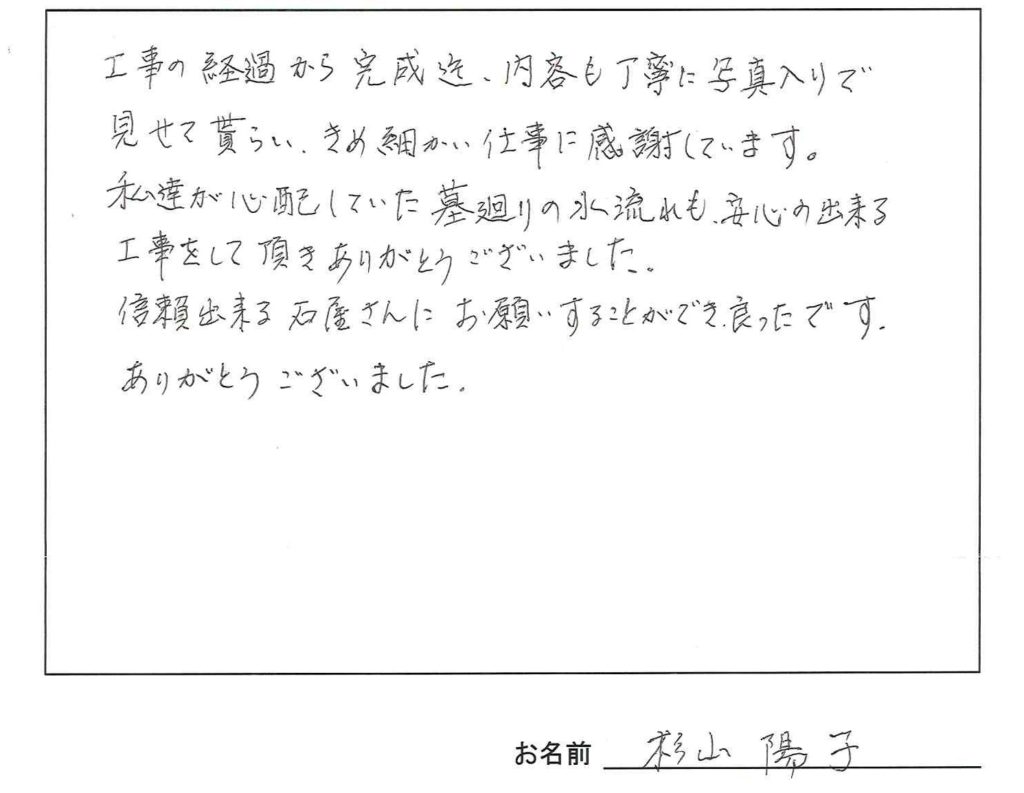 工事の経過から完成迄、内容も丁寧に写真入りで
見せて貰らい、きめ細かい仕事に感謝しています。
私達が心配していた墓廻りの水流れも、安心の出来る
工事をして頂きありがとうございました。
信頼出来る石屋さんにお願いすることができ、良ったです。
ありがとうございました。
お名前 杉山陽子